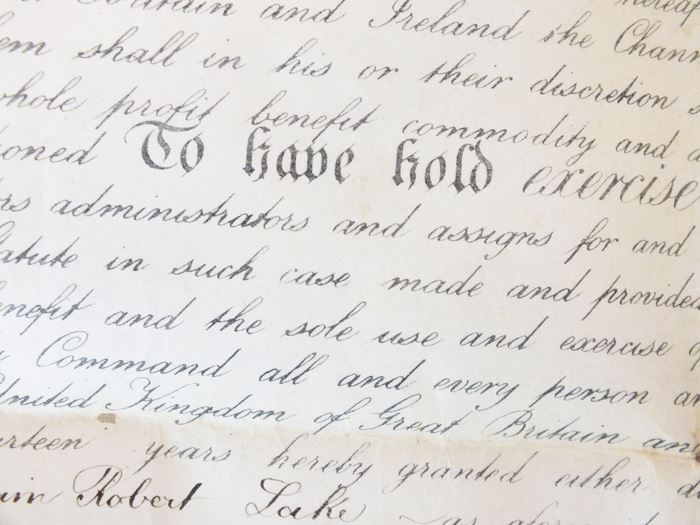 Britain and Ireland the Chann
em shall in his or their discretion
whole profit benefit commodity and a
ioned To have hold exercise
rs administrators and assigns for and
tatute in such case made and provided
enefit and the sole use and exercise o
Command all and every person an
United Kingdom of Great Britain and
urteen years hereby granted either d
Robert Lake